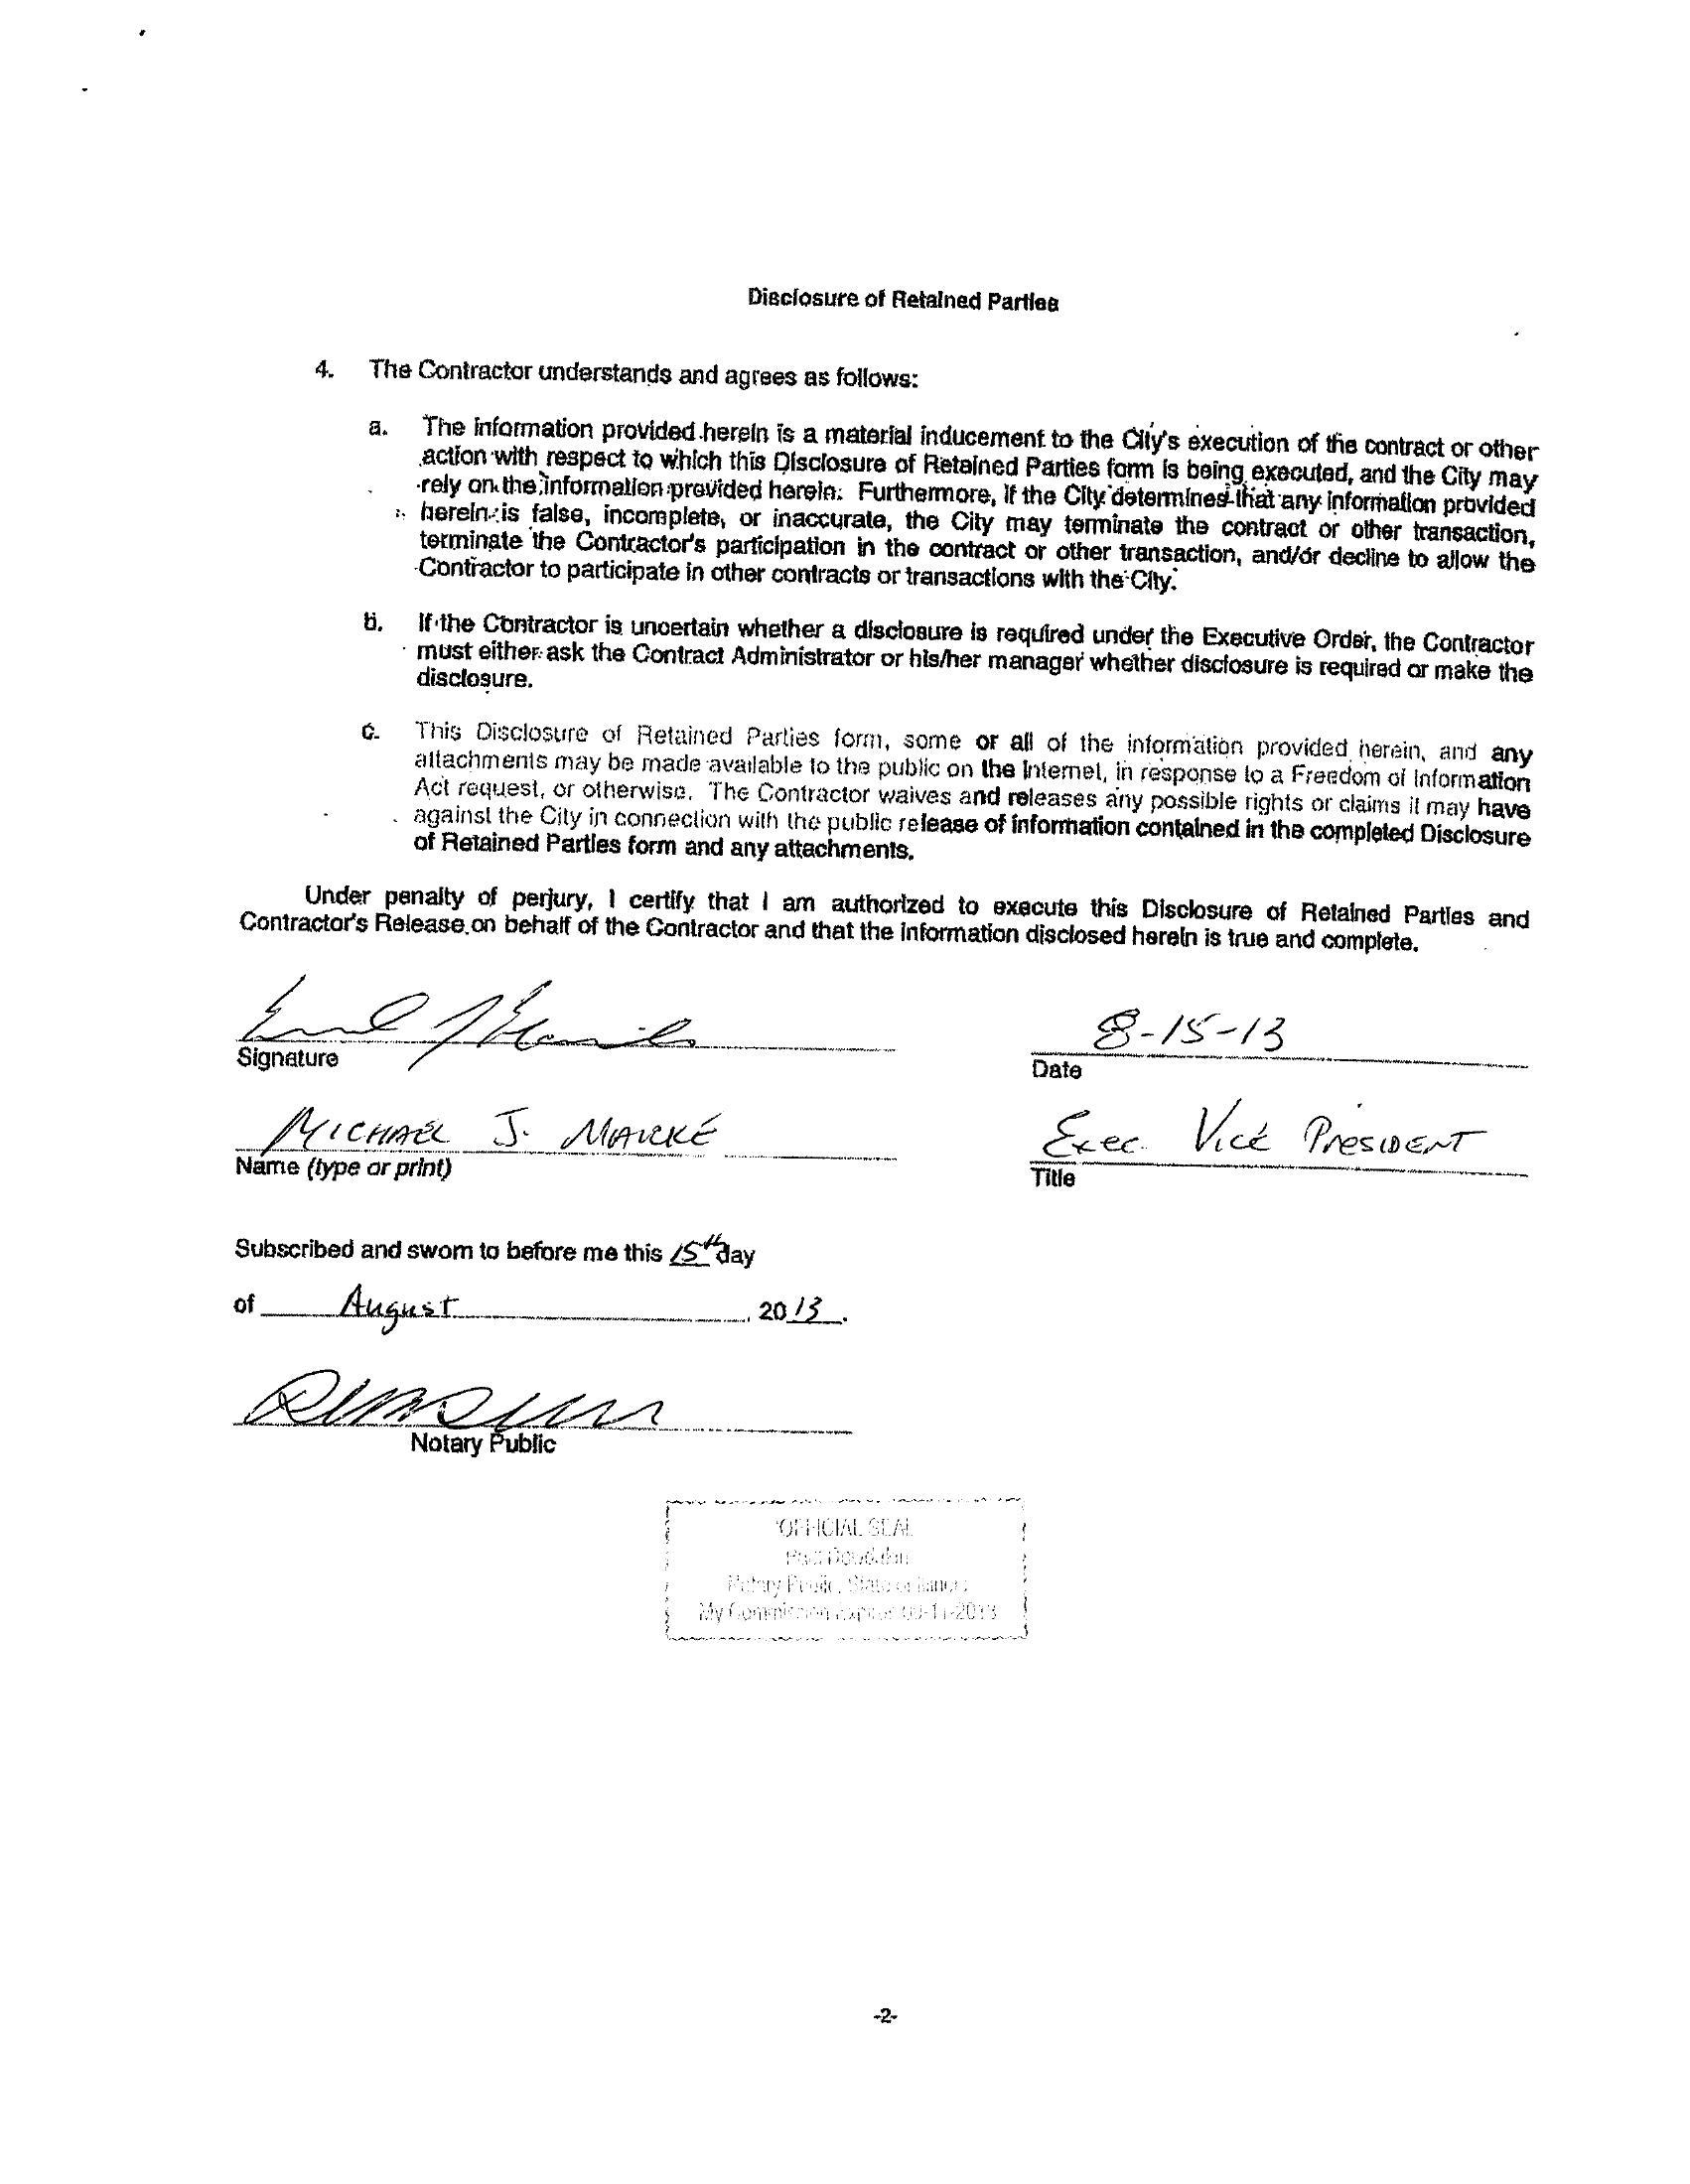 Disclosure of Retained Parties
4. The Contractor understands and agrees as follows:
a. The information provided herein is a material inducement to the City's execution of the contract or other
action with respect to which this Disclosure of Retained Parties form is being executed, and the City may
rely on the information provided herein. Furthermore, if the City determines that any information provided
herein is false, incomplete, or inaccurate, the City may terminate the contract or other transaction,
terminate the Contractor's participation in the contract or other transaction, and/or decline to allow the
Contractor to participate in other contracts or transactions with the City.
b. If the Contractor is uncertain whether a disclosure is required under the Executive Order, the Contractor
must either ask the Contract Administrator or his/her manager whether disclosure is required or make the
disclosure.
c. This Disclosure of Retained Parties form, some or all of the information provided herein, and any
attachments may be made available to the public on the Internet, in response to a Freedom of Information
Act request, or otherwise. The Contractor waives and releases any possible rights or claims it may have
against the City in connection with the public release of information contained in the completed Disclosure
of Retained Parties form and any attachments.
Under penalty of perjury, I certify that I am authorized to execute this Disclosure of Retained Parties and
Contractor's Release on behalf of the Contractor and that the information disclosed herein is true and complete.
8-15-13
Signature Date
MICHAEL J. Exec. Vice President
Name (type or print) Title
Subscribed and sworn to before me this 15th day
of August, 2013.
Notary Public
"OFFICIAL SEAL
Notary Public, State of Illinois
My Commission Expires -11-2013
-2-